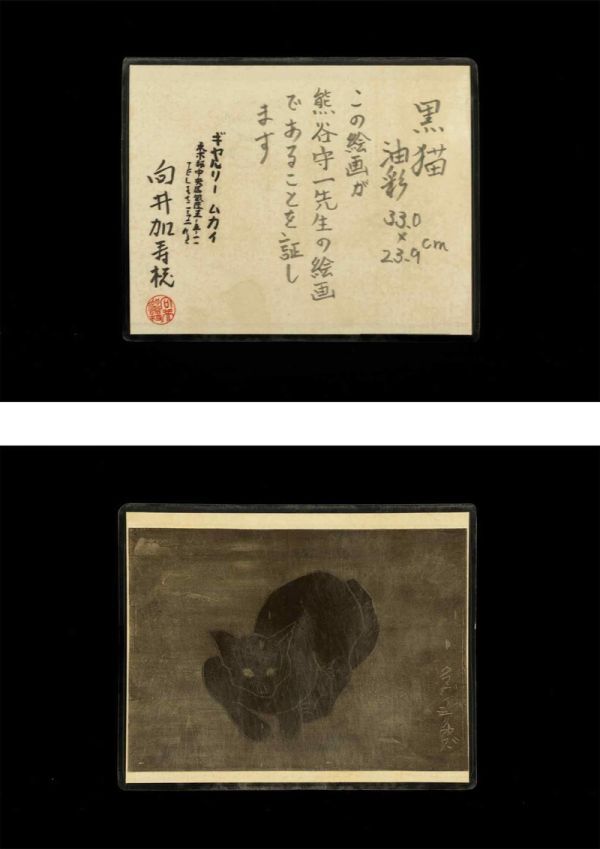 黒猫
油彩
33.0
×
23.9
cm
この絵画が
熊谷守一先生の絵画
であることを証し
ます
ギャルリー ムカイ
東京都中央区銀座五・五・一一
向井加寿枝
クマガイモリカズ